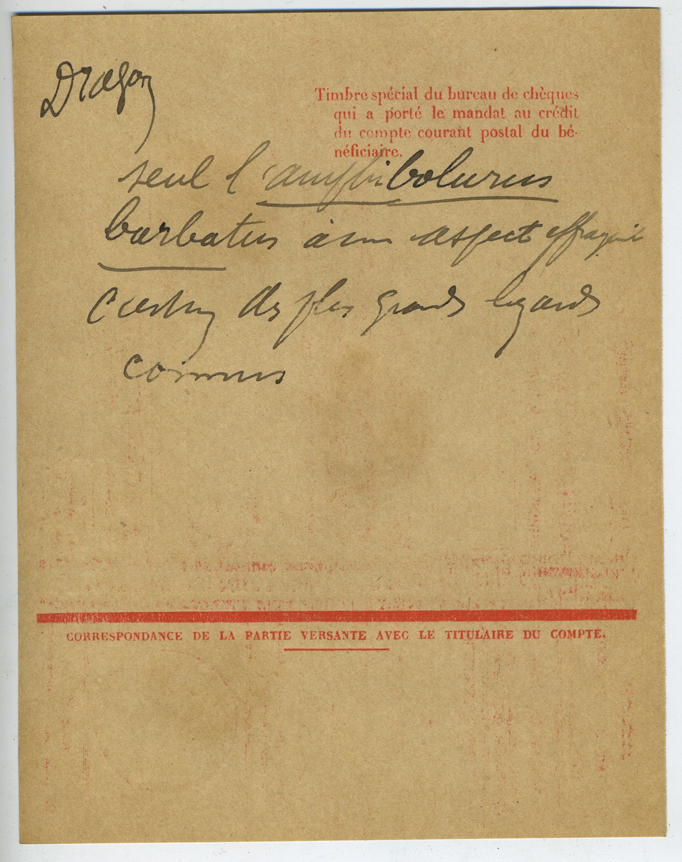 Dragon
Timbre spécial du bureau de chèques
qui a porté le mandat au crédit
du compte courant postal du bé-
néficiaire.
seul l'amphibolurus
barbatus à un aspect effrayant
c'est un des plus grands lézards
connus
CORRESPONDANCE DE LA PARTIE VERSANTE AVEC LE TITULAIRE DU COMPTE.